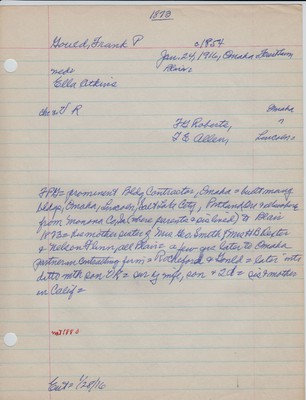 1873
Gould, Frank P c1854
Jan 24, 1916, Omaha
Blair =
med=
Ella Atkins
ch = 2/ R Omaha
F G Roberts, ?
F E Allen, Lincoln =
FPG = prominent Bldg Contractor, Omaha = built many
bldgs, Omaha, Lincoln, Salt Lake City, Portland Ore &
from Monona Co, Ia (where parents = ) to Blair
1873 = his mother sister of Mrs Geo Smith, Mrs H B Dexter
& Nelson Glenn, all Blair = a few yrs later to Omaha
partner in contracting firm = Rocheford & Gould = later into
ditto with son = R = sur by wife, son & 2 d = sis & mother
in Calif =
Ent = 1/28/16